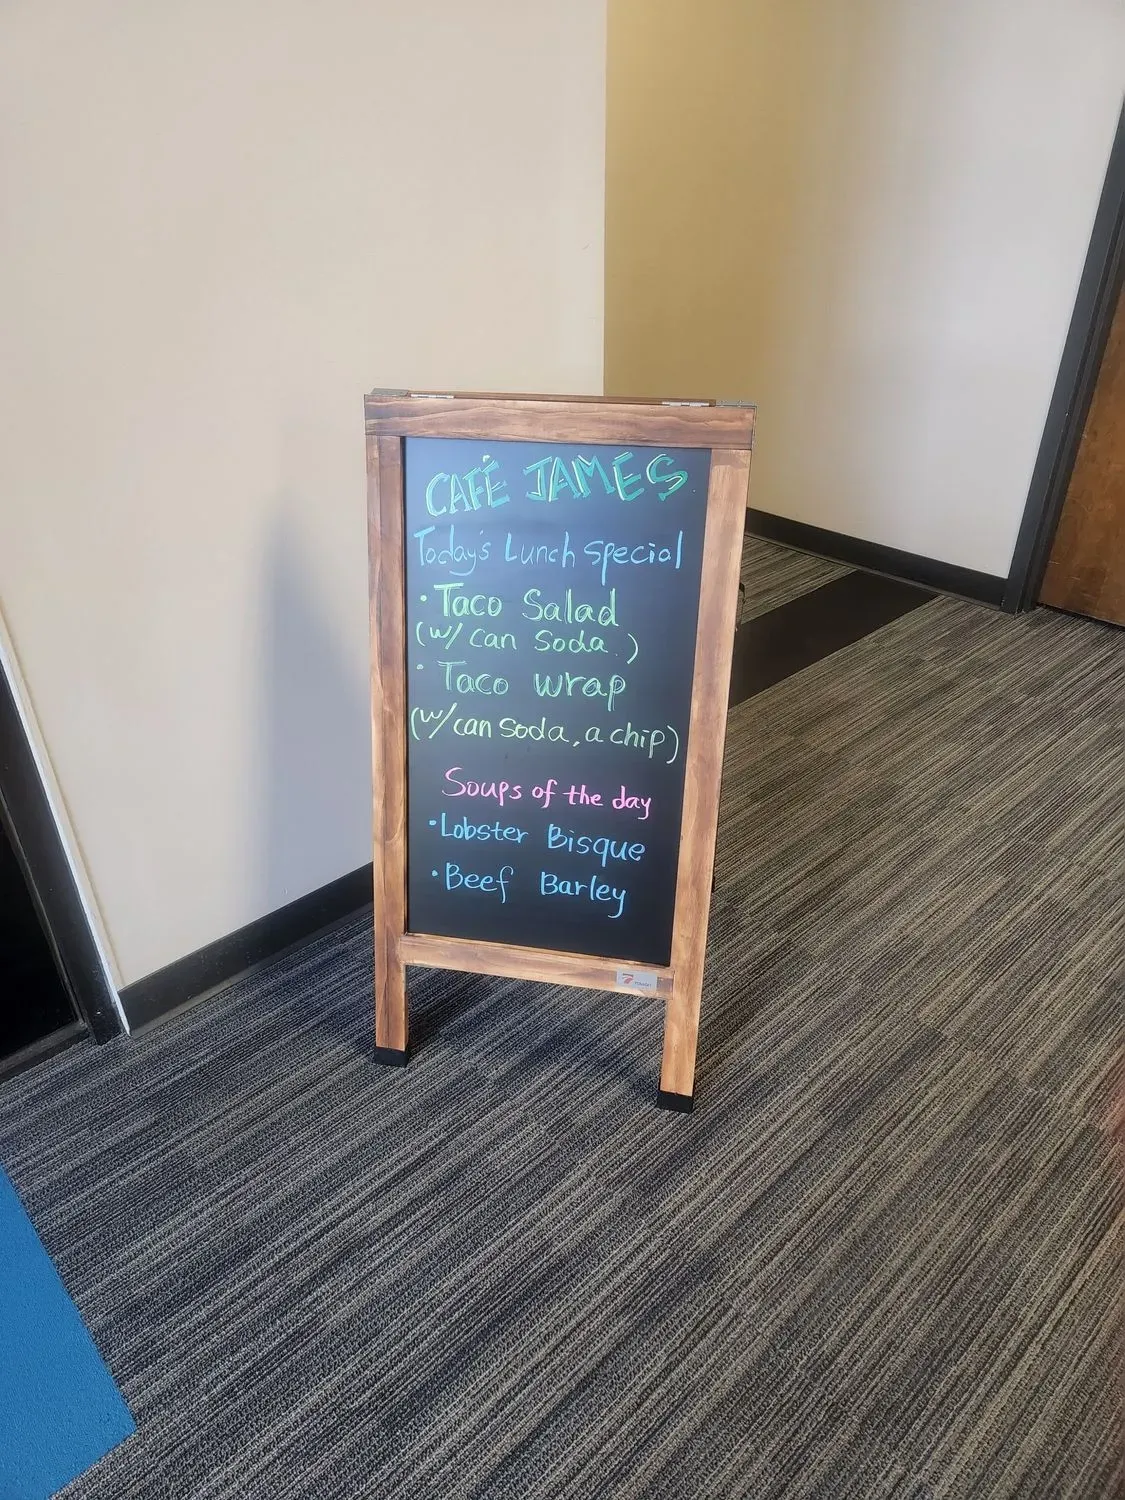 CAFÉ JAMES
Today's Lunch Special
• Taco Salad
(w/ can Soda.)
• Taco wrap
(w/can soda, a chip)
Soups of the day
• Lobster Bisque
• Beef Barley